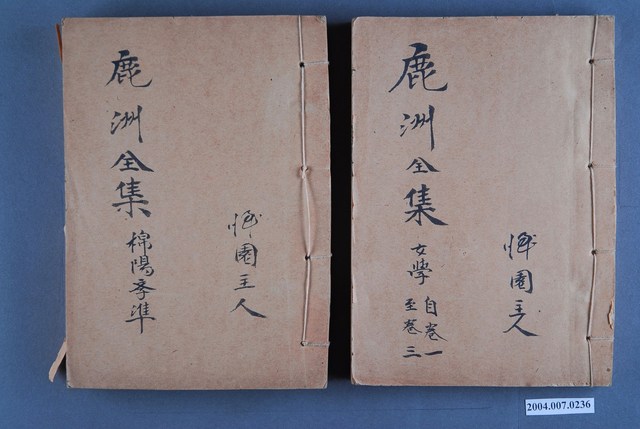 鹿洲全集 女學 自卷一
至卷三
園主人
鹿洲全集 棉陽學準
園主人
2004.007.0236